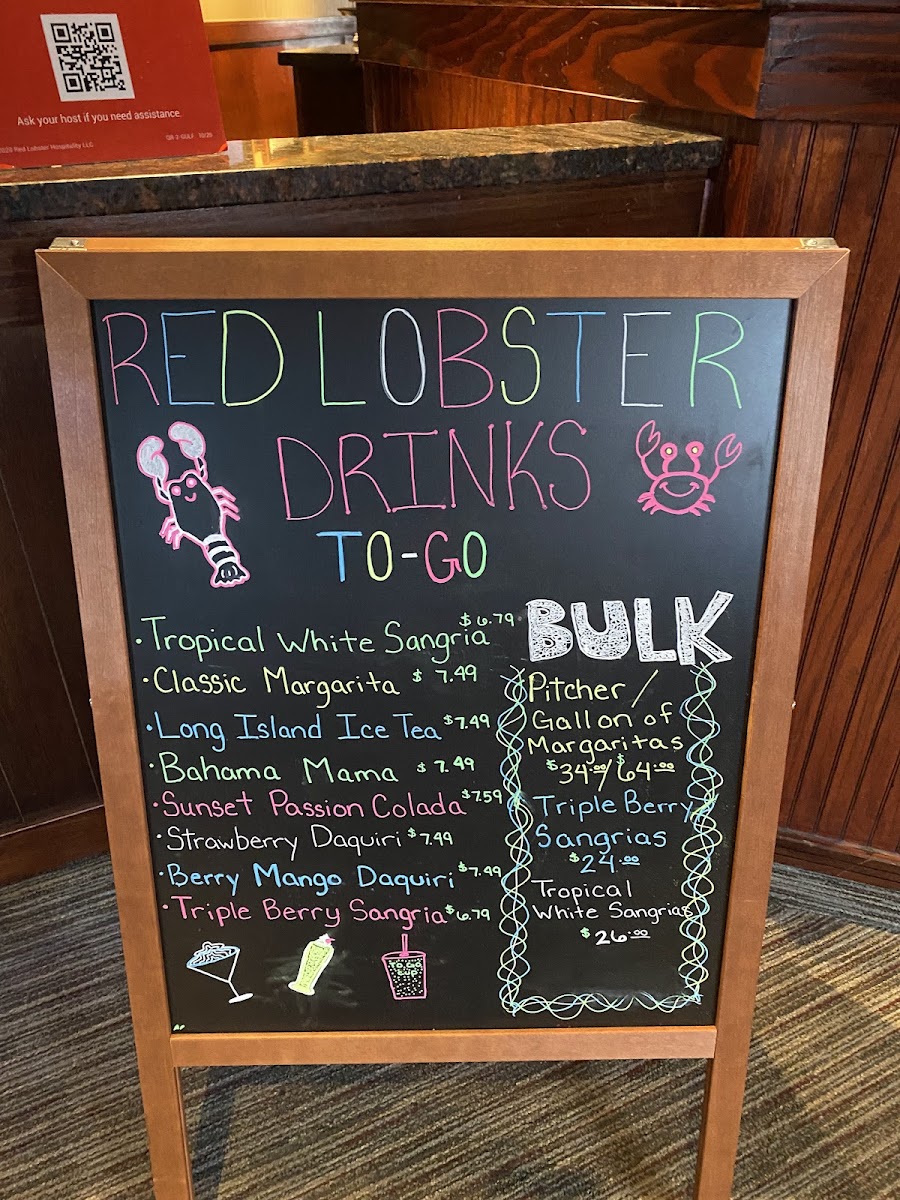 Ask your host if you need assistance.
QR-2-GULF 10/20
2020 Red Lobster Hospitality LLC
RED LOBSTER
DRINKS
TO-GO
·Tropical White Sangria $6.79
·Classic Margarita $7.49
·Long Island Ice Tea $7.49
·Bahama Mama $7.49
·Sunset Passion Colada $7.59
·Strawberry Daquiri $7.49
·Berry Mango Daquiri $7.49
·Triple Berry Sangria $6.79
TO GO
CUP
BULK
Pitcher /
Gallon of
Margaritas
$34.00/$64.00
Triple Berry
Sangrias
$24.00
Tropical
White Sangrias
$26.00